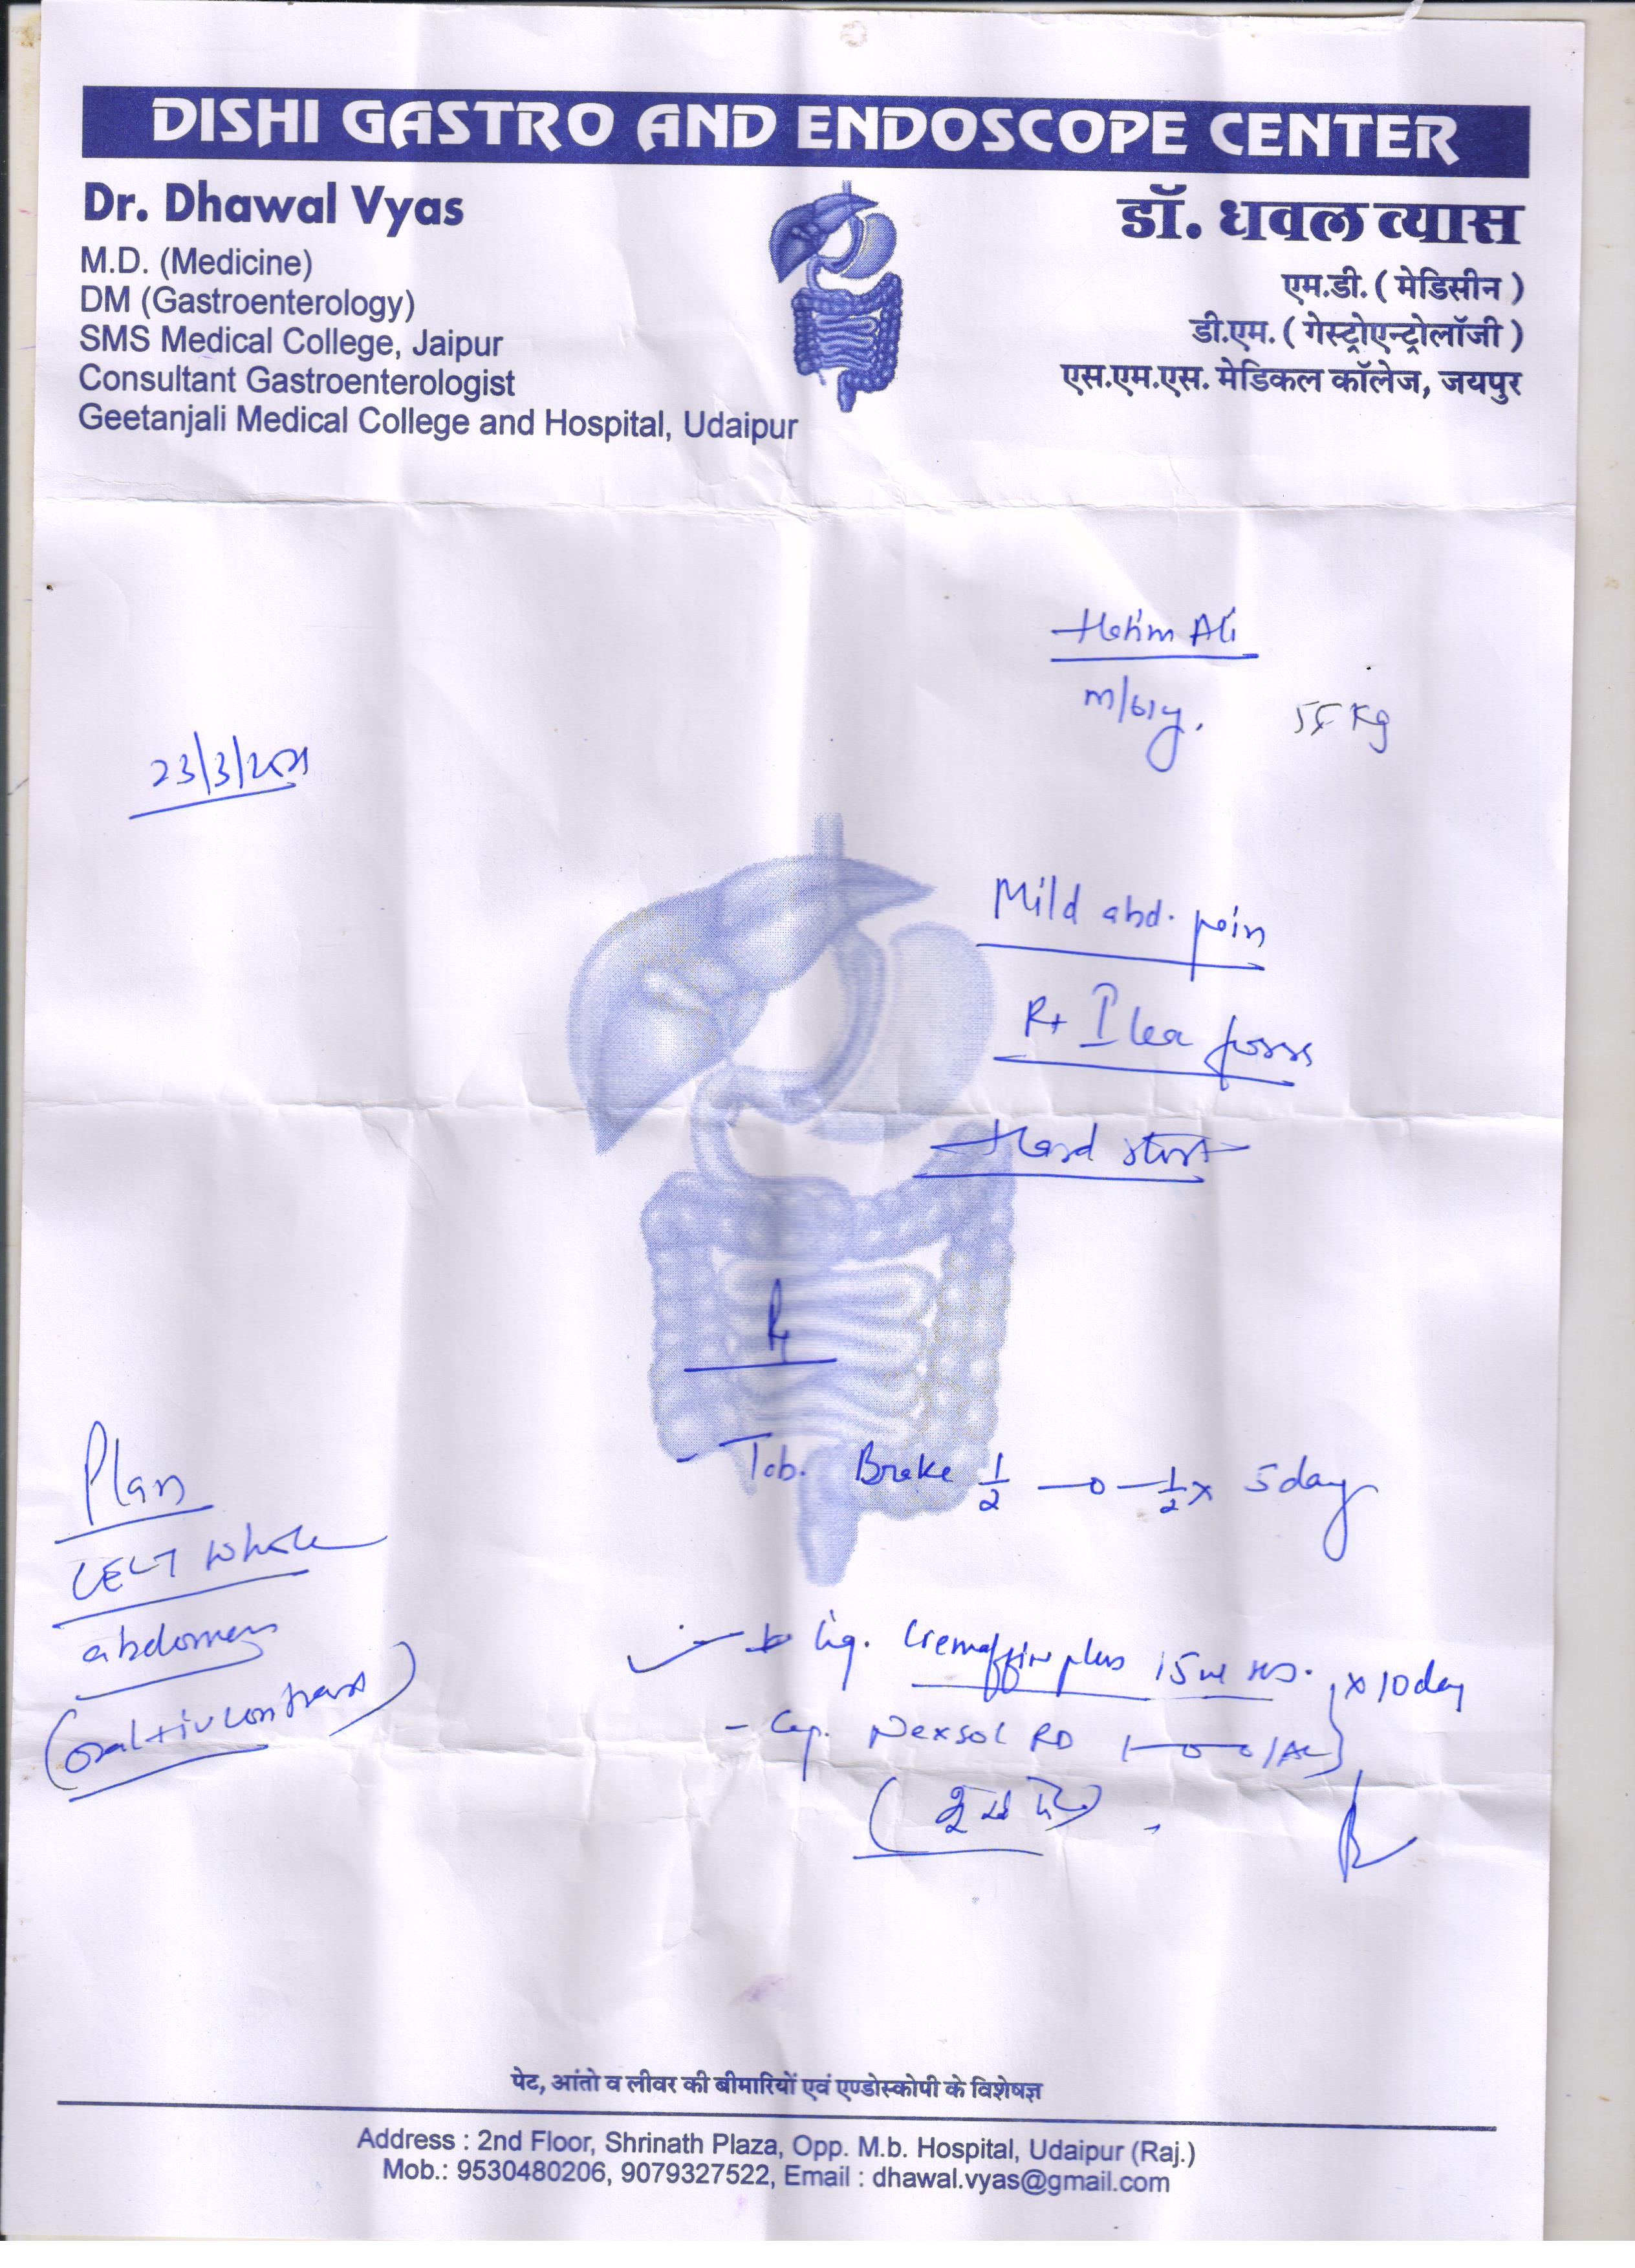 DISHI GASTRO AND ENDOSCOPE CENTER
Dr. Dhawal Vyas
M.D. (Medicine)
DM (Gastroenterology)
SMS Medical College, Jaipur
Consultant Gastroenterologist
Geetanjali Medical College and Hospital, Udaipur
डॉ. धवल व्यास
एम.डी. ( मेडिसीन )
डी.एम. ( गेस्ट्रोएन्ट्रोलॉजी )
एस.एम.एस. मेडिकल कॉलेज, जयपुर
Hatim Ali
M/61y.
Kg
23/3/2021
Mild abd. pain
Rt Iliac fossa
Hard
Rx
Tab. 1/2 —0— 1/2 x 5 day
Plan
CECT Whole
abdomen
(oral + iv contrast)
- Liq. Cremaffin plus 15 ml HS.
x 10 day
- Cap. Nexsol RD 1—0—0/AC
पेट, आंतो व लीवर की बीमारियों एवं एण्डोस्कोपी के विशेषज्ञ
Address : 2nd Floor, Shrinath Plaza, Opp. M.b. Hospital, Udaipur (Raj.)
Mob.: 9530480206, 9079327522, Email : dhawal.vyas@gmail.com